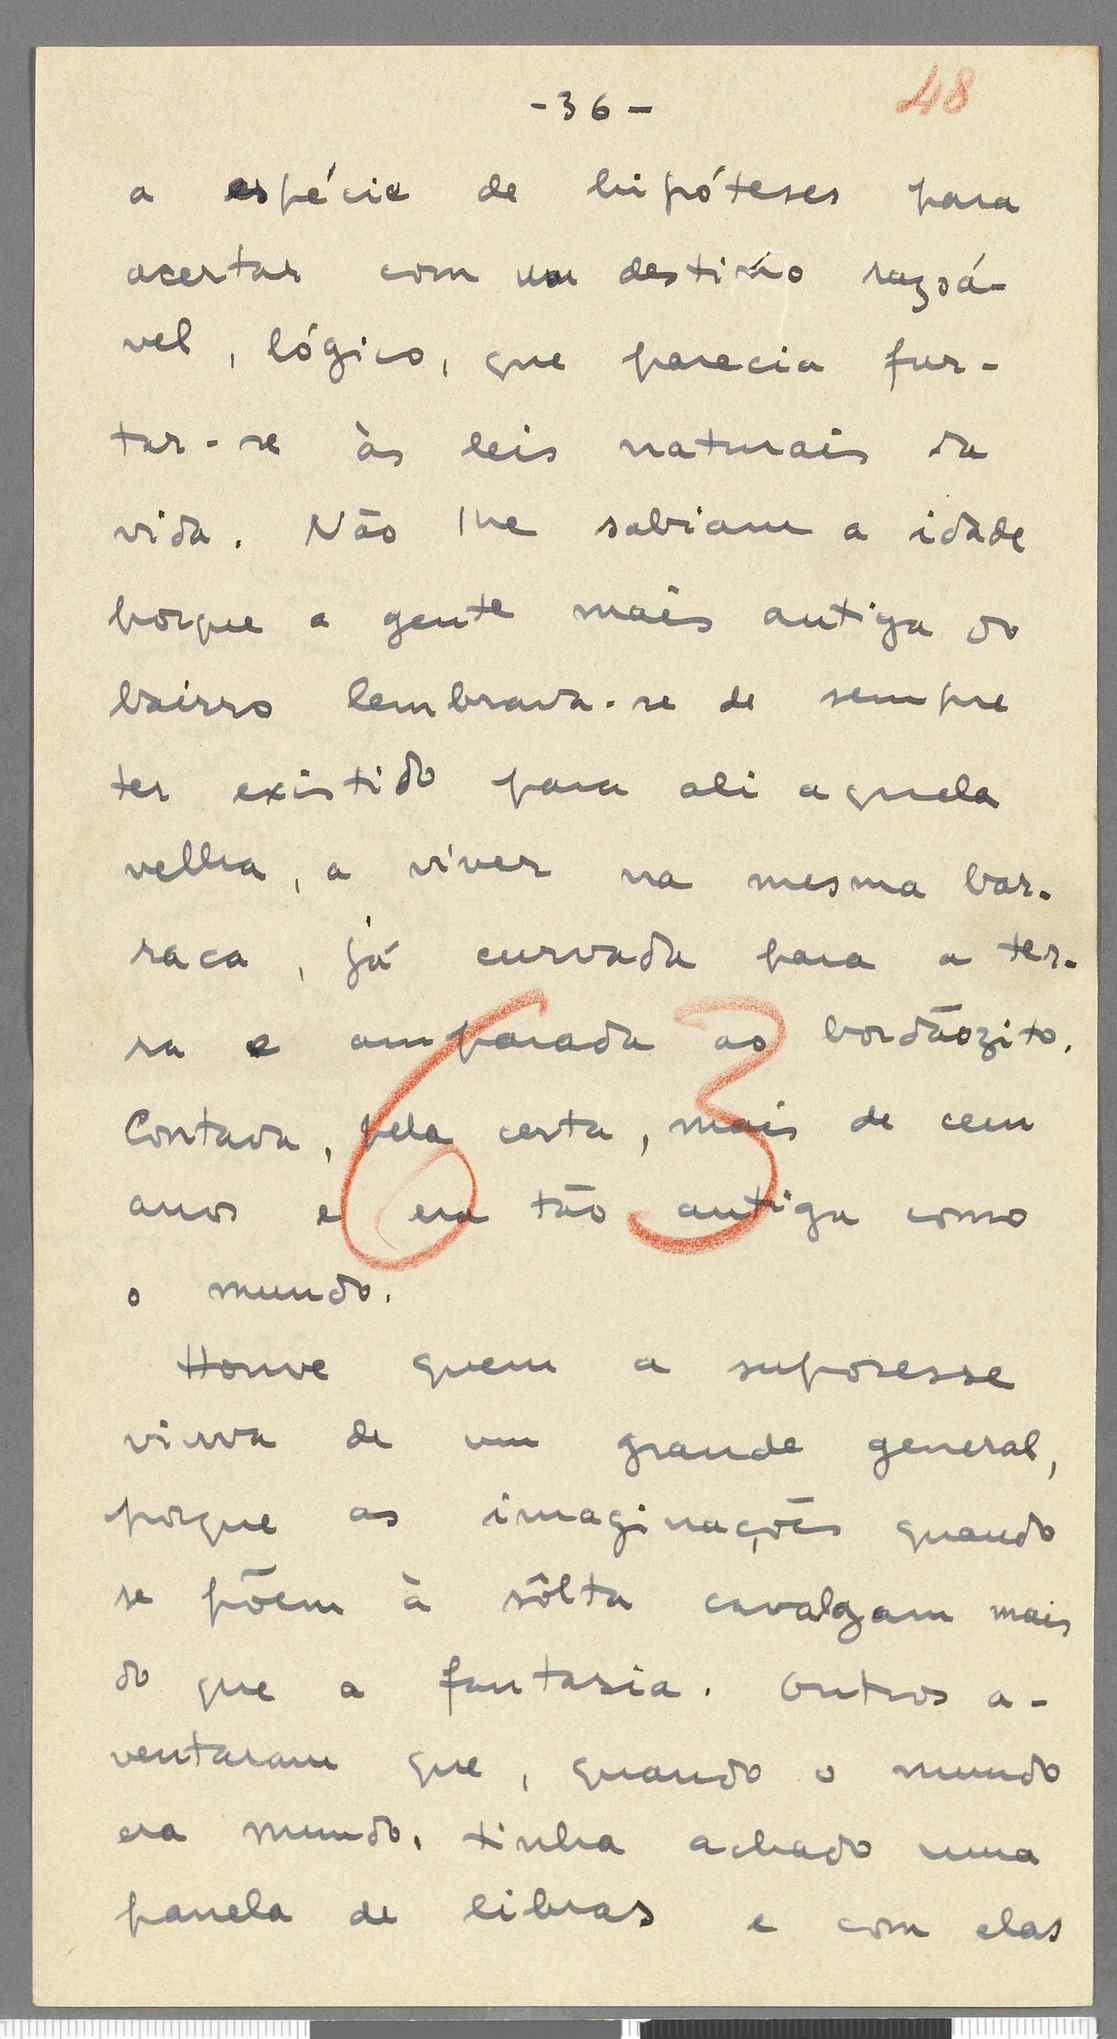 -36-
48
a espécie de hipóteses para
acertar com um destino razoá-
vel, lógico, que parecia fur-
tar-se às leis naturais da
vida. Não lhe sabiam a idade
porque a gente mais antiga do
bairro lembrava-se de sempre
ter existido para ali aquela
velha, a viver na mesma bar-
raca, já curvada para a ter-
ra e amparada ao bordãozito.
Contava, pela certa, mais de cem
anos e era tão antiga como
o mundo.
63
Houve quem a suposesse
viuva de um grande general,
porque as imaginações quando
se põem à sôlta cavalgam mais
do que a fantasia. Outros a-
ventaram que, quando o mundo
era mundo, tinha achado uma
panela de libras e com elas